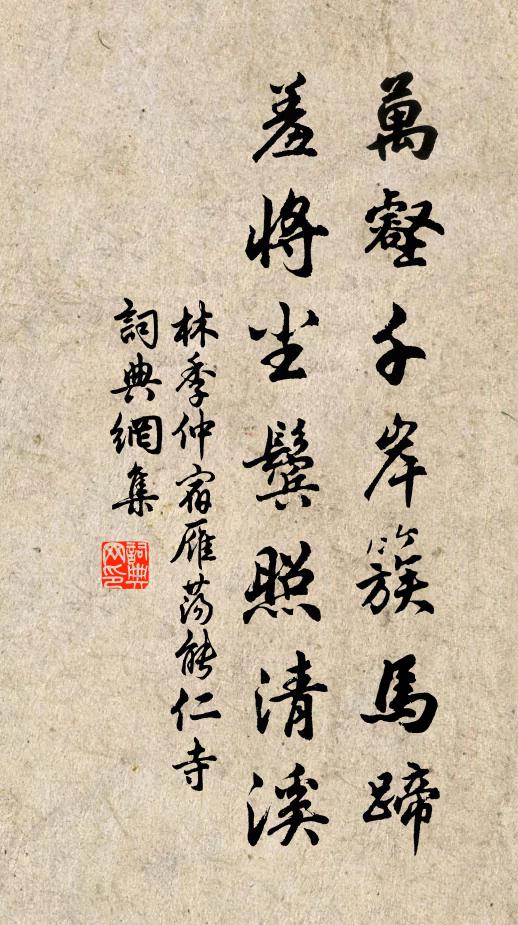 萬壑千岸簇馬蹄
羞將尘鬢照清溪
林季仲宿雁荡能仁寺
詞典網集
詞典網印